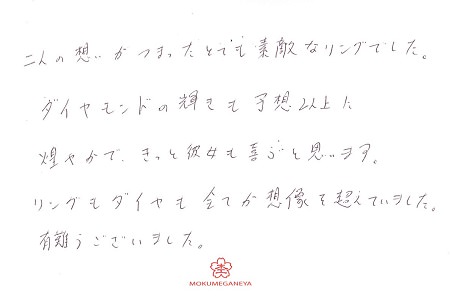 二人の想いがつまったとても素敵なリングでした。
ダイヤモンドの輝きも予想以上に
煌やかで、きっと彼女も喜ぶと思います。
リングもダイヤも全てが想像を超えていました。
有難うございました。
MOKUMEGANEYA